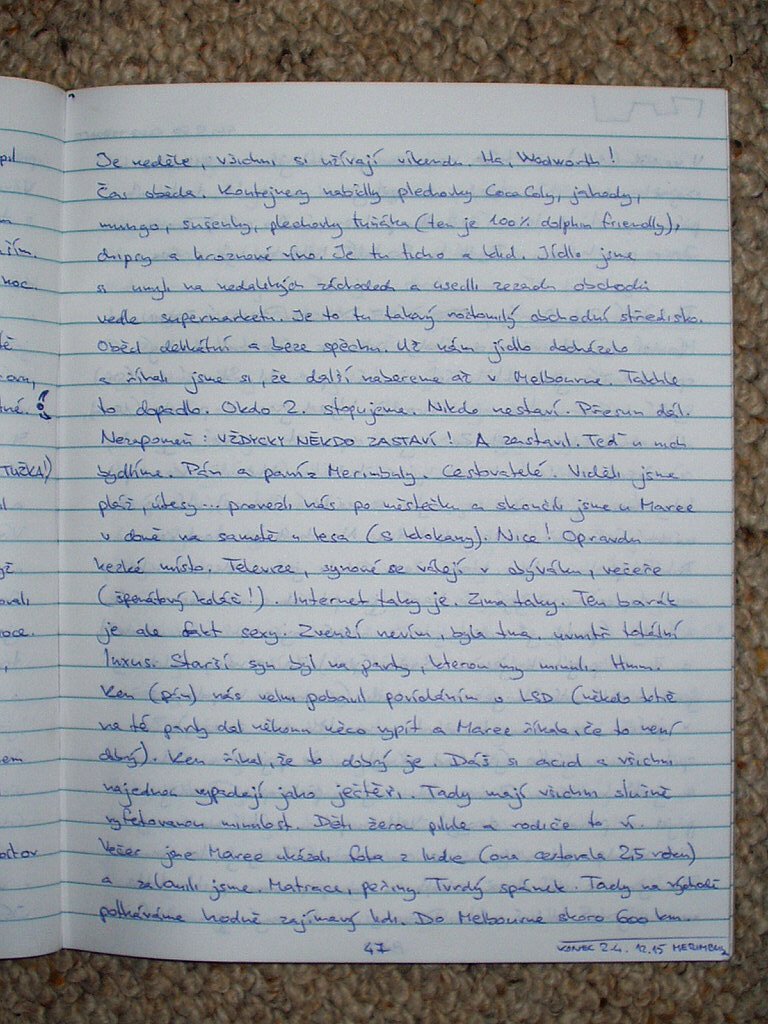 Je neděle, všichni si užívají víkendu. Ha, Wodworth!
Čas oběda. Kontejnery nabídly plechovky Coca Coly, jahody,
mango, sušenky, plechovky tuňáka (ten je 100% dolphin friendly),
chipsy a hroznové víno. Je tu ticho a klid. Jídlo jsme
si umyli na nedalekých záchodech a usedli zezadu obchodu
vedle supermarketu. Je to tu takový roztomilý obchodní středisko.
Oběd delikátní a beze spěchu. Už nám jídlo docházelo
a říkali jsme si, že další nabereme až v Melbourne. Takhle
to dopadlo. Okolo 2. stopujeme. Nikdo nestaví. Přesun dál.
Nezapomeň: VŽDYCKY NĚKDO ZASTAVÍ! A zastavil. Teď u nich
bydlíme. Pán a paní z Merimbuly. Cestovatelé. Viděli jsme
pláž, útesy... provezli nás po městečku a skončili jsme u Maree
v domě na samotě u lesa (s klokany). Nice! Opravdu
hezké místo. Televize, synové se válejí v obýváku, večeře
(špenátový koláč!). Internet taky je. Zima taky. Ten barák
je ale fakt sexy. Zvenčí nevím, byla tma, uvnitř totální
luxus. Starší syn byl na party, kterou my minuli. Hmm.
Ken (pán) nás velmi pobavil povídáním o LSD (někdo totiž
na té party dal někomu něco vypít a Maree říkala, že to není
dobrý). Ken říkal, že to dobrý je. Dáš si acid a všichni
najednou vypadají jako ještěři. Tady mají všichni slušně
vyfetovanou minulost. Děti žerou pilule a rodiče to ví.
Večer jsme Maree ukázali fota z Indie (ona cestovala 2,5 roku)
a zalomili jsme. Matrace, peřiny. Tvrdý spánek. Tady na východě
potkáváme hodně zajímavý lidi. Do Melbourne skoro 600 km.
47
KONEC 2.4. 12.15 MERIMBULA
TUŽKA!)